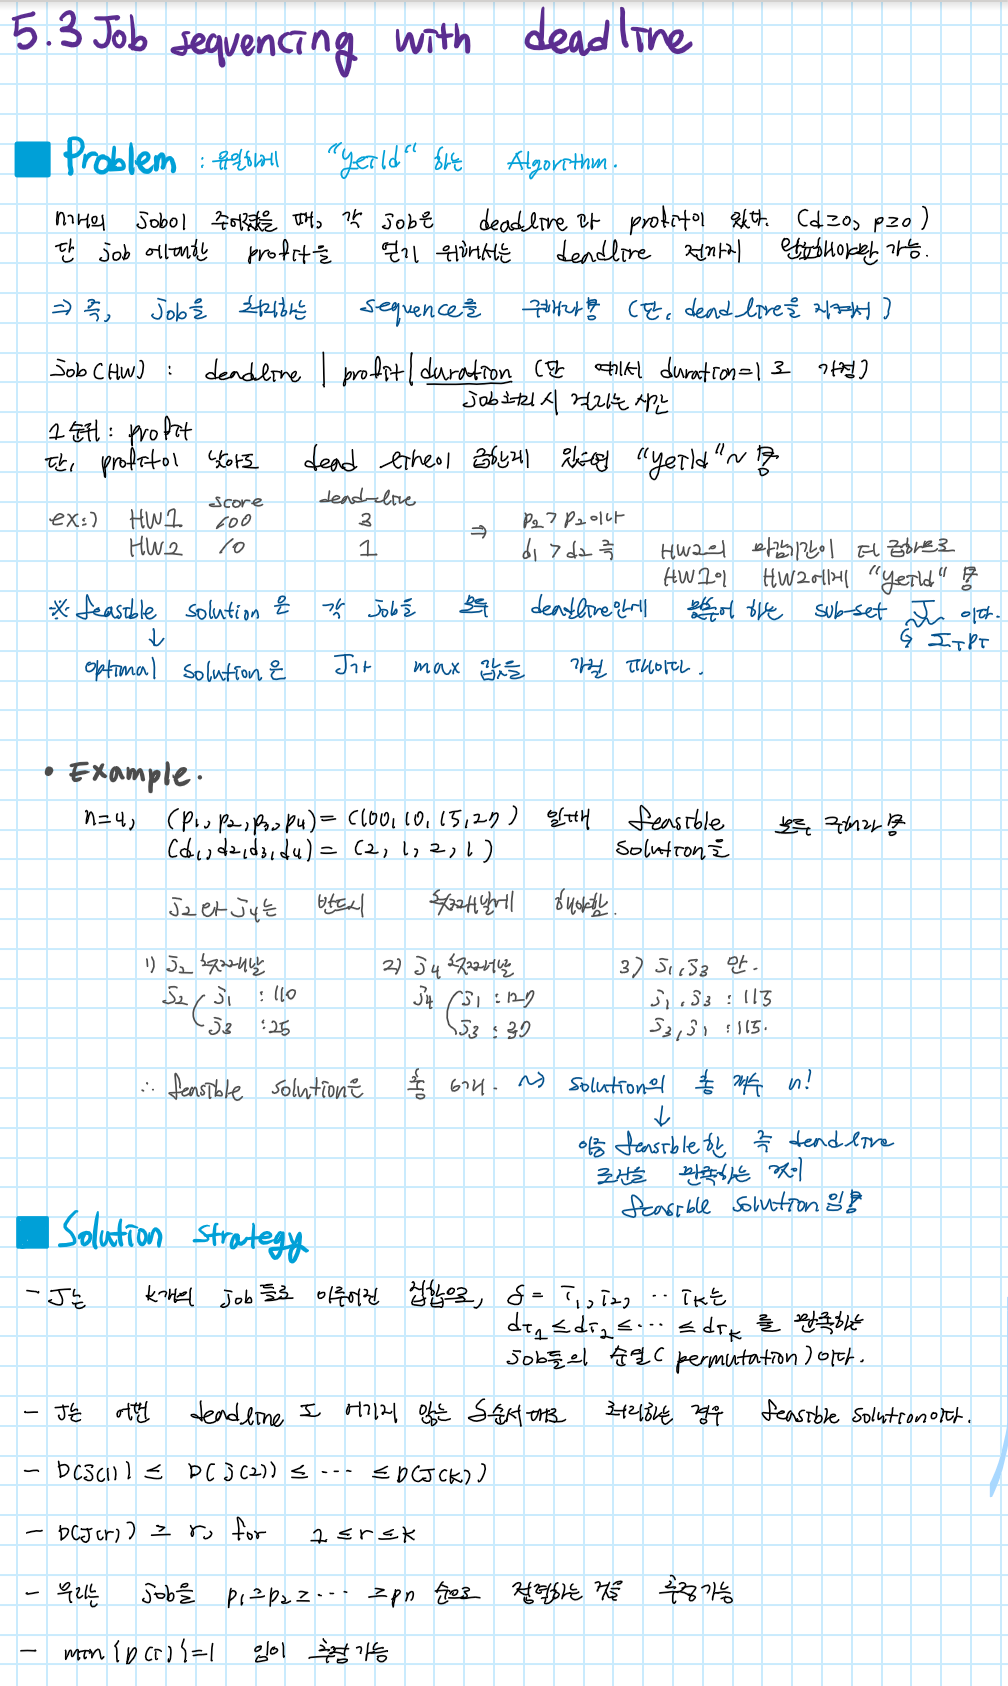 5.3 Job sequencing with deadline
Problem : 유일하게 "yeild" 하는 Algorithm.
n개의 job이 주어졌을 때, 각 job은 deadline과 profit이 있다. (d≥0, p≥0)
단 job에대한 profit을 얻기 위해서는 deadline 전까지 완료해야만 가능.
⇒ 즉, job을 처리하는 sequence를 구해나가 (단, deadline을 지켜서)
job(HW) : deadline | profit | duration (단 여기서 duration=1로 가정)
job처리 시 걸리는 시간
1순위 : profit
단, profit이 낮아도 dead line이 급한게 있으면 "yeild"~
score dead-line
ex:) HW1 100 3 ⇒ P2 > P2 이나
HW2 10 1 d1 > d2 즉 HW2의 마감기간이 더 급하므로
HW1이 HW2에게 "yeild"
※ feasible solution은 각 job들 모두 deadline안에 하는 sub-set J 이다.
↓ ↳ Σipi
optimal solution은 J가 max 값을 가질 때이다.
• Example.
n=4, (p1, p2, p3, p4) = (100, 10, 15, 27) 일때 feasible 모두 구해라
(d1, d2, d3, d4) = (2, 1, 2, 1) solution을
j2와 j4는 반드시 첫째날에 해야함.
1) j2 첫째날 2) j4 첫째날 3) j1, j3 만.
j2 j1 : 110 j4 j1 : 127 j1, j3 : 115
j3 : 25 j3 : 37 j3, j1 : 115.
∴ feasible solution은 총 6개. ~> solution의 총 개수 n!
↓
이중 feasible한 즉 deadline
조건을 만족하는 것이
feasible solution임
Solution strategy
- J는 k개의 job들로 이루어진 집합으로, δ = i1, i2, ·· ik는
di1 ≤ di2 ≤ ··· ≤ dik 를 만족하는
job들의 순열(permutation)이다.
- J는 어떤 deadline도 어기지 않는 δ순서대로 처리하는 경우 feasible solution이다.
- D(J(1)) ≤ D(J(2)) ≤ ··· ≤ D(J(K))
- D(J(r)) ≥ r, for 1 ≤ r ≤ k
- 우리는 job을 p1≥p2≥ ··· ≥pn 순으로 정렬하는 것을 추정가능
- min{D(i)}=1 임이 추정 가능